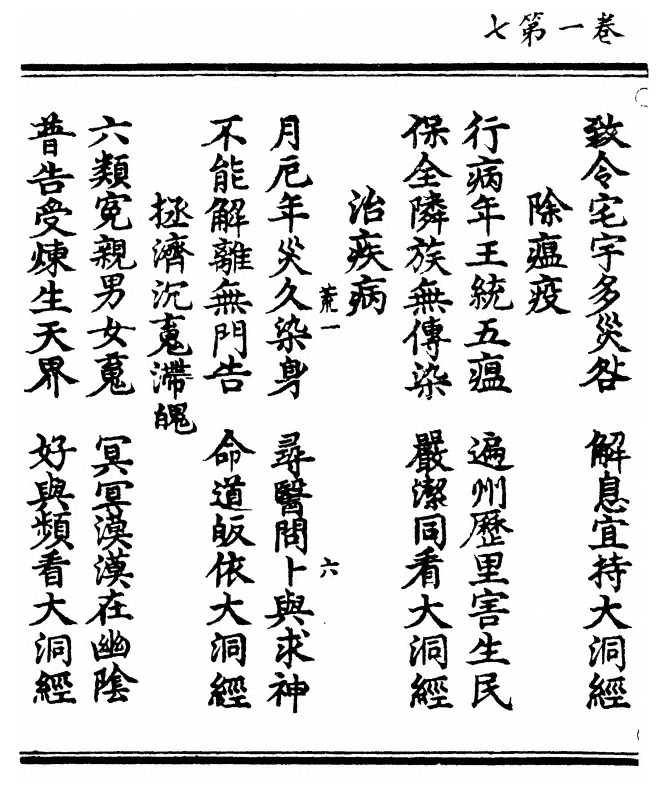 卷一第七
致令宅宇多災咎 解息宜持大洞經
除瘟疫
行病年王統五瘟 遍州歷里害生民
保全隣族無傳染 嚴潔同看大洞經
治疾病
荒一 六
月厄年災久染身 尋醫問卜與求神
不能解離無門告 命道皈依大洞經
拯濟沉䰟滯魄
六類寃親男女䰟 冥冥漠漠在幽陰
普告受煉生天界 好與頻看大洞經